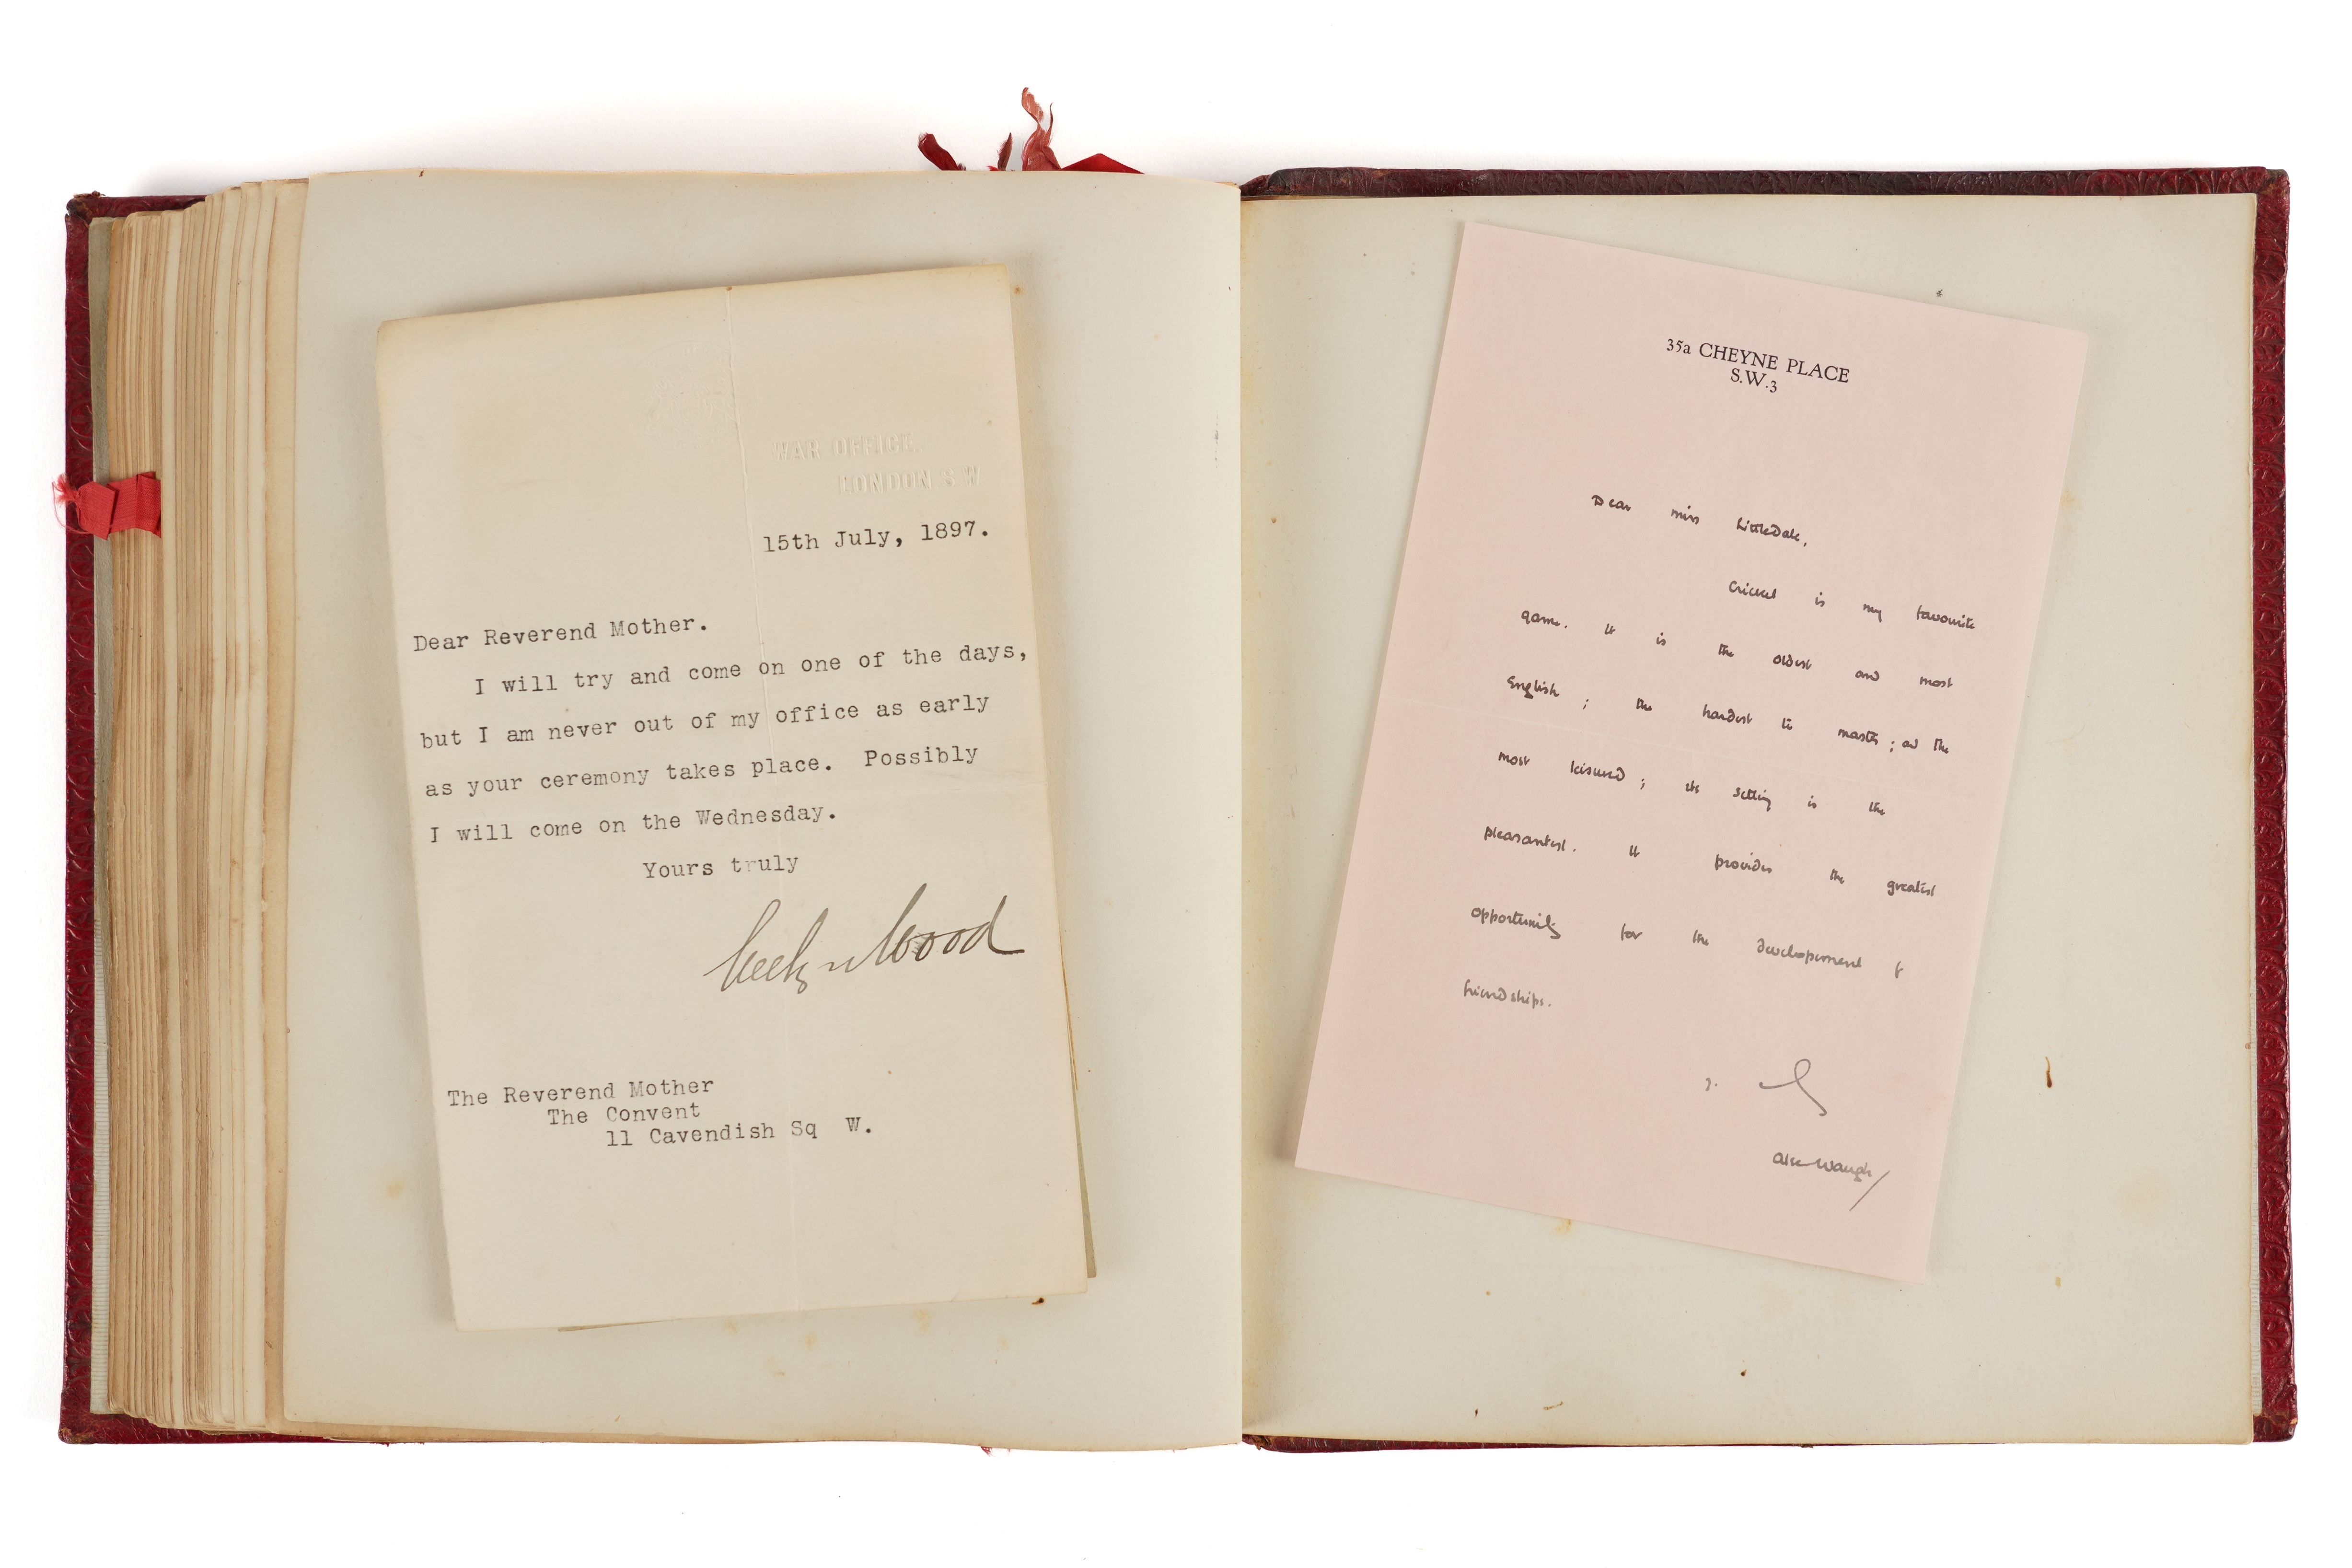 WAR OFFICE.
LONDON S W
15th July, 1897.
Dear Reverend Mother.
I will try and come on one of the days,
but I am never out of my office as early
as your ceremony takes place. Possibly
I will come on the Wednesday.
Yours truly
Evelyn Wood
The Reverend Mother
The Convent
11 Cavendish Sq W.
35a CHEYNE PLACE
S.W.3
Dear Miss Littledale,
Cricket is my favourite
game. It is the oldest and most
English ; the hardest to master ; and the
most leisured ; its setting is the
pleasantest. It provides the greatest
opportunity for the developement of
friendships.
Alec Waugh